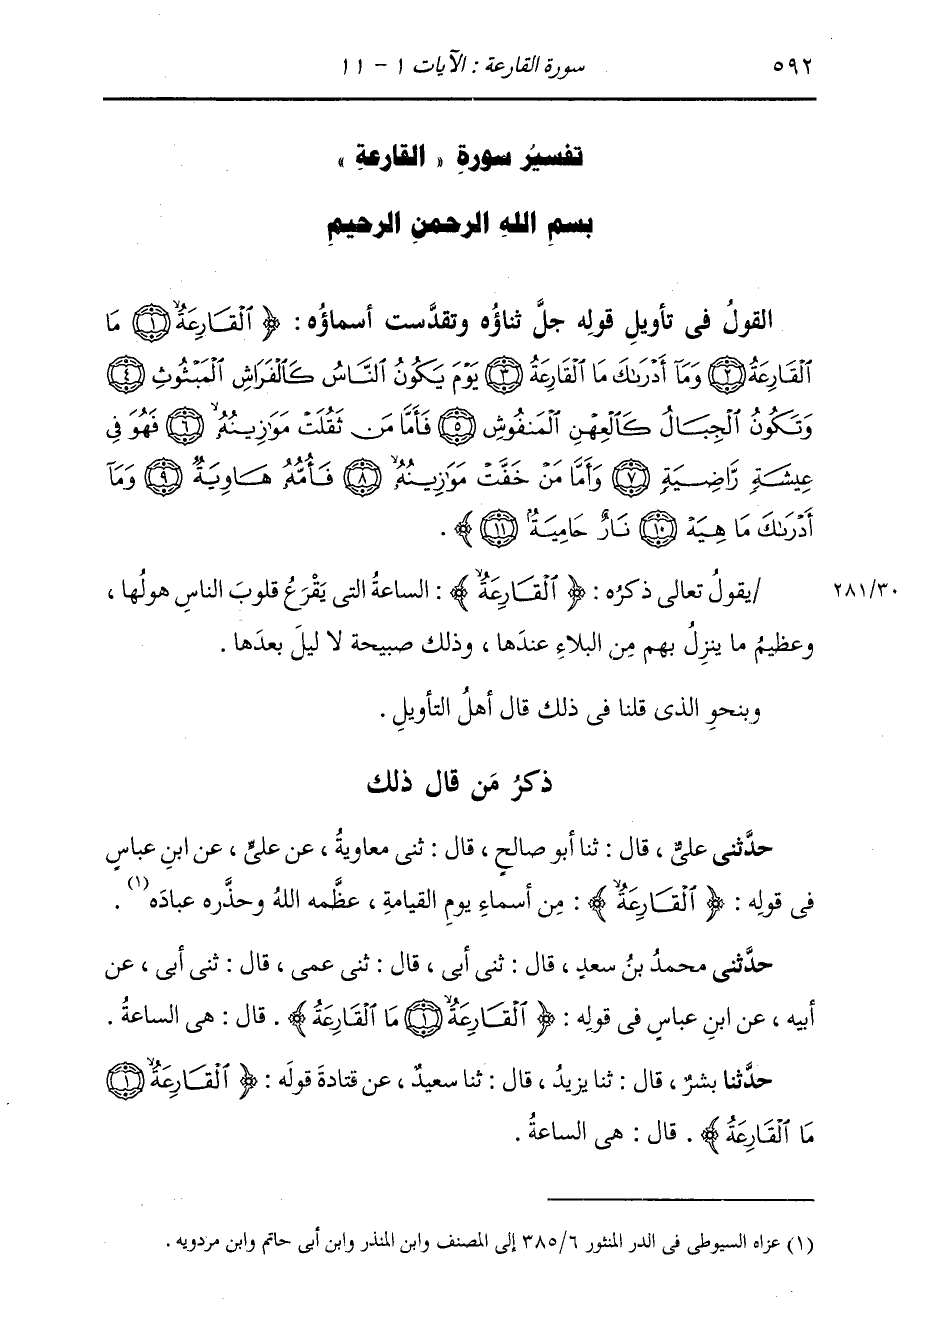 ٥٩٢ سورة القارعة : الآيات ١ - ١١
تفسيرُ سورةِ « القارعةِ »
بسمِ اللهِ الرحمنِ الرحيمِ
القولُ فى تأويلِ قولِه جلَّ ثناؤُه وتقدَّست أسماؤُه : ﴿ ٱلْقَارِعَةُ ۝١ مَا
ٱلْقَارِعَةُ ۝٢ وَمَآ أَدْرَىٰكَ مَا ٱلْقَارِعَةُ ۝٣ يَوْمَ يَكُونُ ٱلنَّاسُ كَٱلْفَرَاشِ ٱلْمَبْثُوثِ ۝٤
وَتَكُونُ ٱلْجِبَالُ كَٱلْعِهْنِ ٱلْمَنفُوشِ ۝٥ فَأَمَّا مَن ثَقُلَتْ مَوَٰزِينُهُۥ ۝٦ فَهُوَ فِى
عِيشَةٍ رَّاضِيَةٍ ۝٧ وَأَمَّا مَنْ خَفَّتْ مَوَٰزِينُهُۥ ۝٨ فَأُمُّهُۥ هَاوِيَةٌ ۝٩ وَمَآ
أَدْرَىٰكَ مَا هِيَهْ ۝١٠ نَارٌ حَامِيَةٌۢ ۝١١ ﴾ .
٢٨١/٣٠ /يقولُ تعالى ذكرُه : ﴿ ٱلْقَارِعَةُ ﴾ : الساعةُ التى يَقْرَعُ قلوبَ الناسِ هولُها ،
وعظيمُ ما ينزِلُ بهم مِن البلاءِ عندَها ، وذلك صبيحة لا ليلَ بعدَها .
وبنحوِ الذى قلنا فى ذلك قال أهلُ التأويلِ .
ذكرُ مَن قال ذلك
حدَّثنى علىٌّ ، قال : ثنا أبو صالحٍ ، قال : ثنى معاويةُ ، عن علىٍّ ، عن ابنِ عباسٍ
فى قولِه : ﴿ ٱلْقَارِعَةُ ﴾ : مِن أسماءِ يومِ القيامةِ ، عظَّمه اللهُ وحذَّره عبادَه (١) .
حدَّثنى محمدُ بنُ سعدٍ ، قال : ثنى أبى ، قال : ثنى عمى ، قال : ثنى أبى ، عن
أبيه ، عن ابنِ عباسٍ فى قولِه : ﴿ ٱلْقَارِعَةُ ۝١ مَا ٱلْقَارِعَةُ ﴾ . قال : هى الساعةُ .
حدَّثنا بشرٌ ، قال : ثنا يزيدُ ، قال : ثنا سعيدٌ ، عن قتادةَ قولَه : ﴿ ٱلْقَارِعَةُ ۝١
مَا ٱلْقَارِعَةُ ﴾ . قال : هى الساعةُ .
(١) عزاه السيوطى فى الدر المنثور ٣٨٥/٦ إلى المصنف وابن المنذر وابن أبى حاتم وابن مردويه .